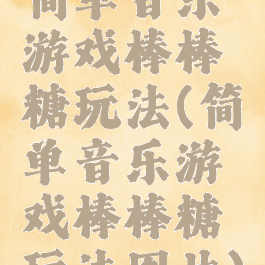 简单音乐
游戏棒棒
糖玩法(简
单音乐游
戏棒棒糖
玩法图片)